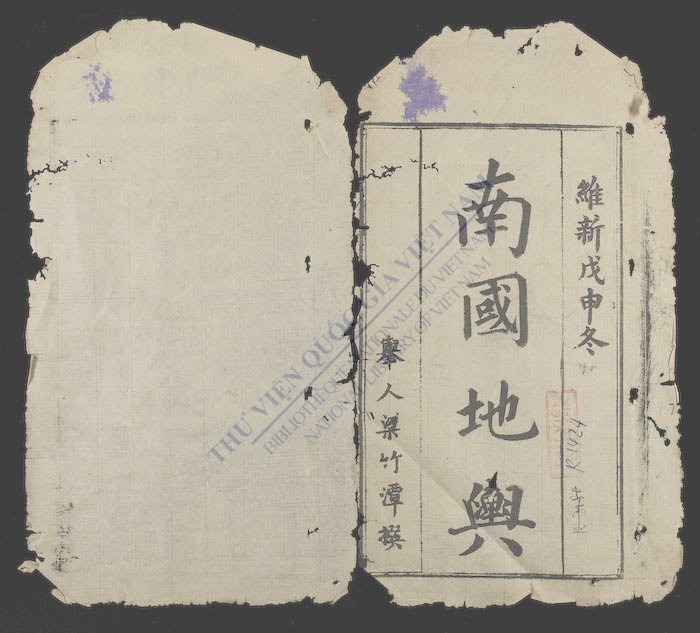 維新戊申冬
南國地輿
舉人梁竹潭撰
R.1924
THƯ VIỆN QUỐC GIA VIỆT NAM
BIBLIOTHÈQUE NATIONALE DU VIETNAM
NATIONAL LIBRARY OF VIETNAM